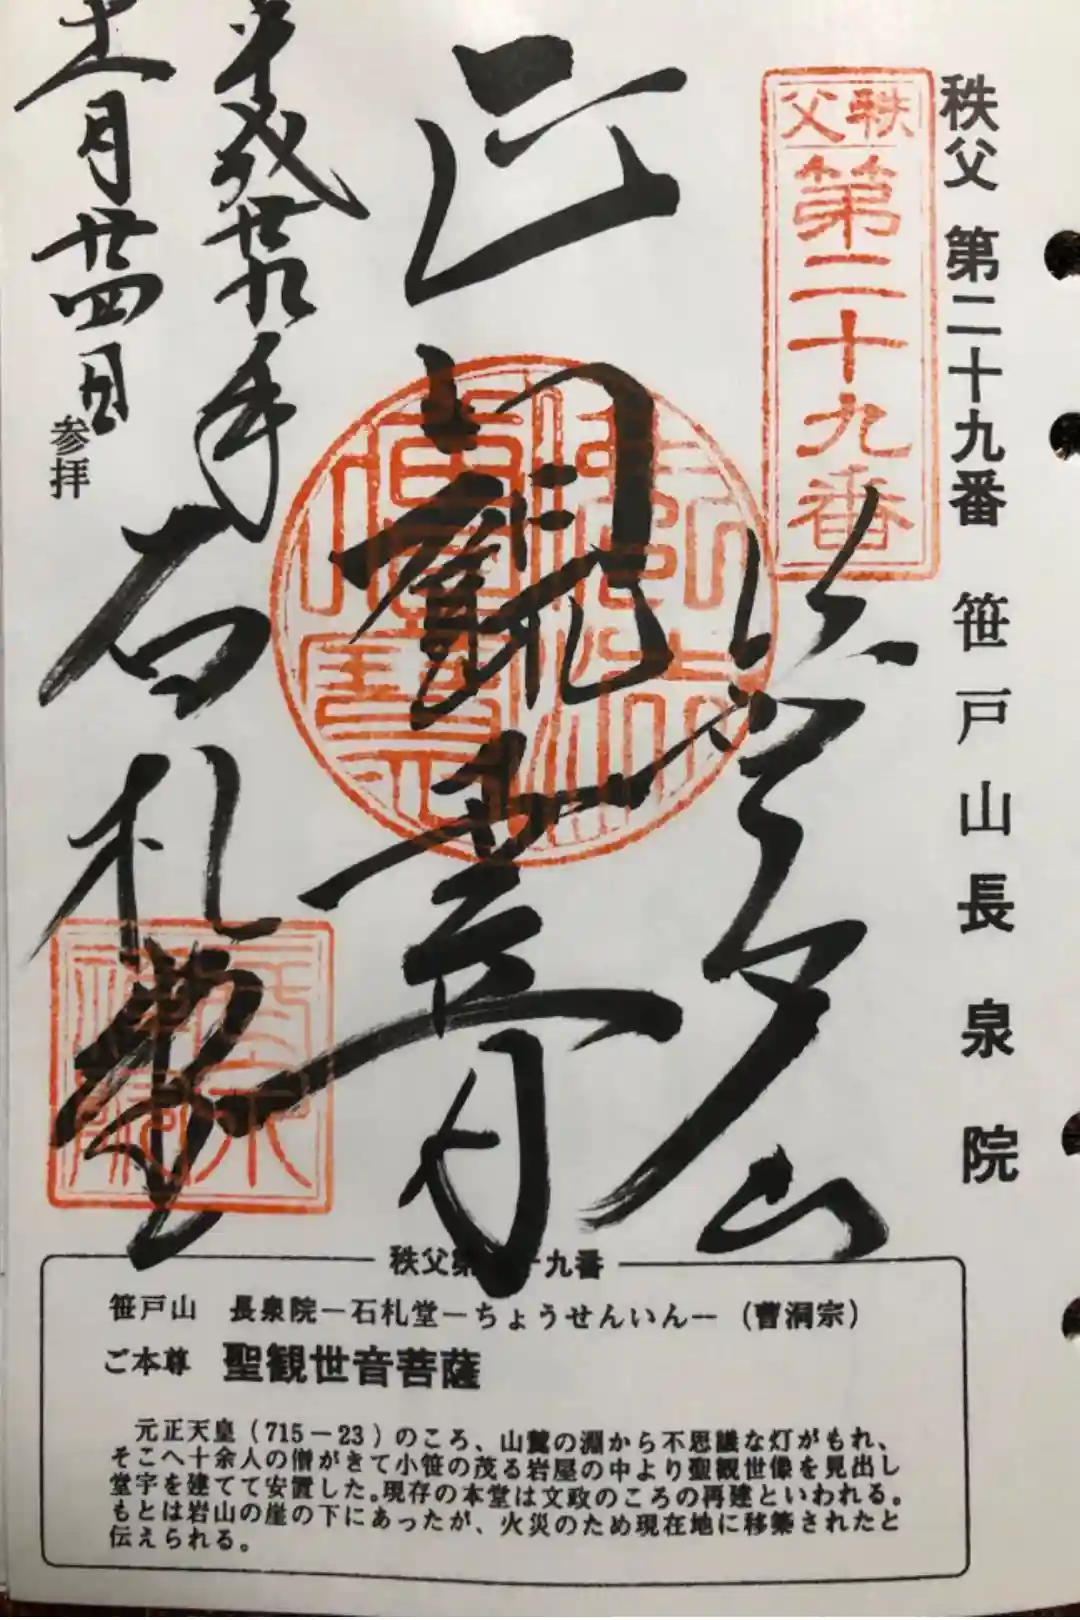 秩父 第二十九番 笹戸山長泉院
秩父
第二十九番
笹戸山
正観世音
石札堂
平成廿九年
十一月廿四日
参拝
秩父第二十九番
笹戸山 長泉院－石札堂－ちょうせんいん－（曹洞宗）
ご本尊 聖観世音菩薩
元正天皇（715－23）のころ、山麓の淵から不思議な灯がもれ、
そこへ十余人の僧がきて小笹の茂る岩屋の中より聖観世像を見出し
堂宇を建てて安置した。現存の本堂は文政のころの再建といわれる。
もとは岩山の崖の下にあったが、火災のため現在地に移築されたと
伝えられる。